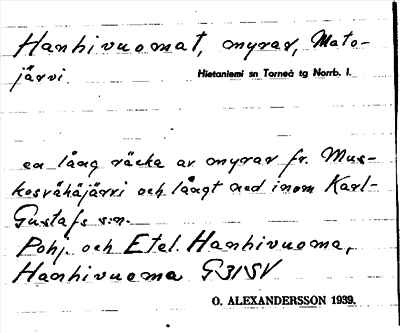 Hanhivuomat, myrar, Mato-
järvi.
Hietaniemi sn Torneå tg Norrb. l.
en lång räcka av myrar fr. Mus-
kosvåhäjärvi och långt ned inom Karl-
Gustafs s:n.
Pohj. och Etel. Hanhivuoma,
Hanhivuoma G31SV
O. ALEXANDERSSON 1939.